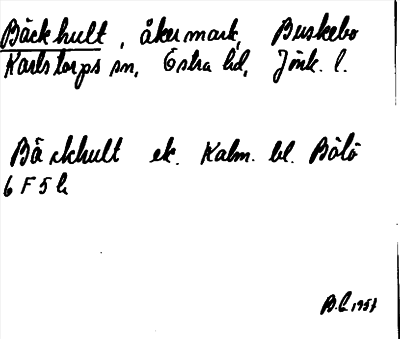 Bäckhult, åkermark, Buskebo
Karlstorps sn, Östra hd, Jönk. l.
Bäckhult ek. Kalm. bl. Bölö
6 F 5 h